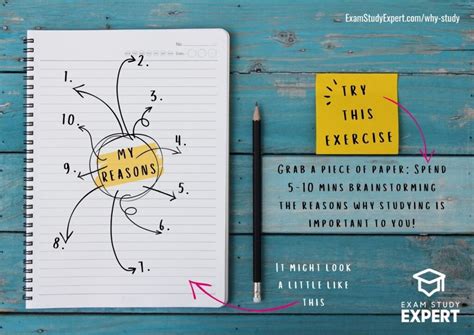 ExamStudyExpert.com/why-study
1.
2.
3.
10.
4.
MY
REASONS
9.
5.
6.
8.
7.
TRY
THIS
EXERCISE
GRAB A PIECE OF PAPER; SPEND
5-10 MINS BRAINSTORMING
THE REASONS WHY STUDYING IS
IMPORTANT TO YOU!
IT MIGHT LOOK
A LITTLE LIKE
THIS
EXAM STUDY
EXPERT